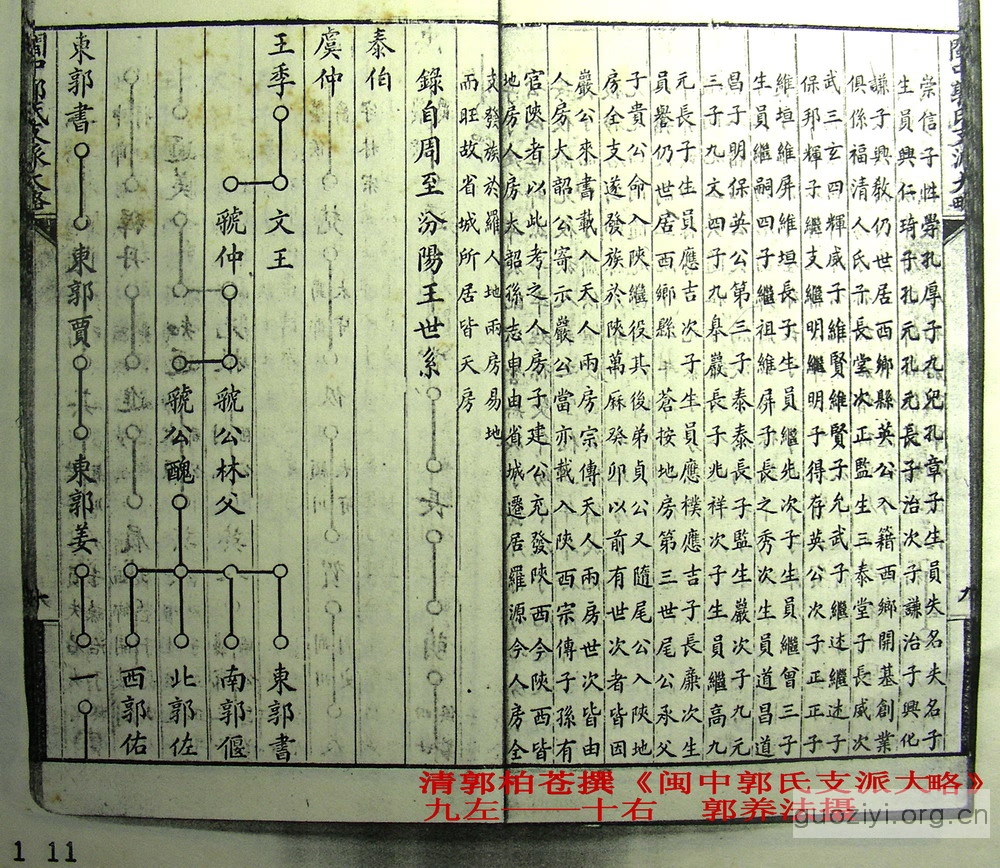 閩中郭氏支派大略
九
崇信子性學孔厚子孔紀孔章子生員失名失名子
生員興仁琦子孔元孔元長子治次子謙治子興化
謙子興教仍世居西鄉縣英公入籍西鄉開基創業
俱係福清人氏子長堂次正監生三泰堂子長威次
武三玄四輝威子維賢維賢子允武子繼述繼述子
保邦輝子繼支繼明繼明子得存英公次子正正子
維垣維屏維垣長子生員繼先次子生員繼曾三子
生員繼嗣四子繼祖維屏子長之秀次生員道昌道
昌子明保英公第三子泰泰長子監生嚴次子九元
三子九文四子九皋嚴長子兆祥次子生員繼高九
元長子生員應吉次子生員應樸應吉子長廉次生
員譽仍世居西鄉縣 蒼按地房第三世尾公承父
子貴公命入陝繼役其後弟貞公又隨尾公入陝地
房全支遂發族於陝萬厤癸卯以前有世次者皆因
嚴公來書載入天人兩房宗傳天人兩房世次皆由
人房大韶公寄示嚴公當亦載入陝西宗傳子孫有
官陝者以此考之人房子建公充發陝西今陝西皆
地房人房大韶孫志申由省城遷居羅源今人房全
支發族於羅人地兩房易地
而旺故省城所居皆天房
錄自周至汾陽王世系
泰伯
虞仲
王季 文王 東郭書
虢仲 虢公林父 南郭偃
虢公醜 北郭佐
西郭佑
東郭書 東郭賈 東郭姜 一
閩中郭氏支派大略
十
清郭柏苍撰《闽中郭氏支派大略》
九左——十右 郭养法摄
guoziyi.org.cn
1 11